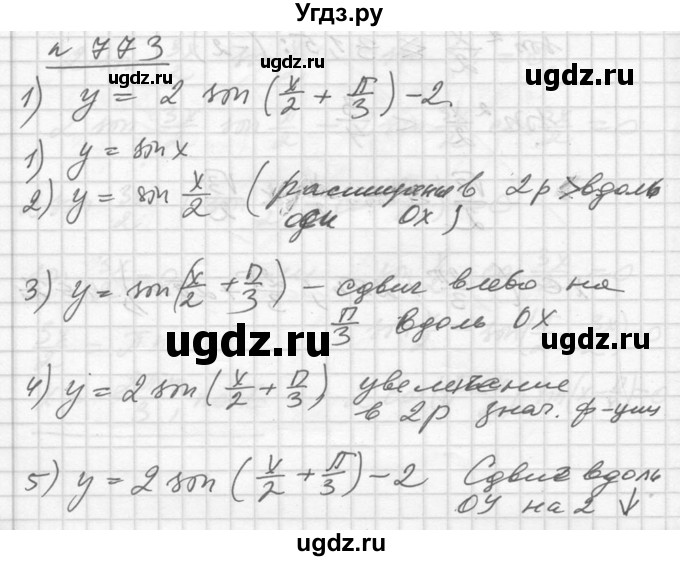 Угдз.ру
n 773
ugdz.ru
ugdz.ru
ugdz.ru
1) y = 2 sin (x/2 + π/3) - 2
1) y = sin x
2) y = sin x/2 (расширение в 2р вдоль
оси Ox)
3) y = sin (x/2 + π/3) - сдвиг влево на
π/3 вдоль OX
ugdz.ru
ugdz.ru
4) y = 2 sin (x/2 + π/3) увеличение
в 2р знач. ф-ции
5) y = 2 sin (x/2 + π/3) - 2 Сдвиг вдоль
ОУ на 2 ↓
ugdz.ru
ugdz.ru